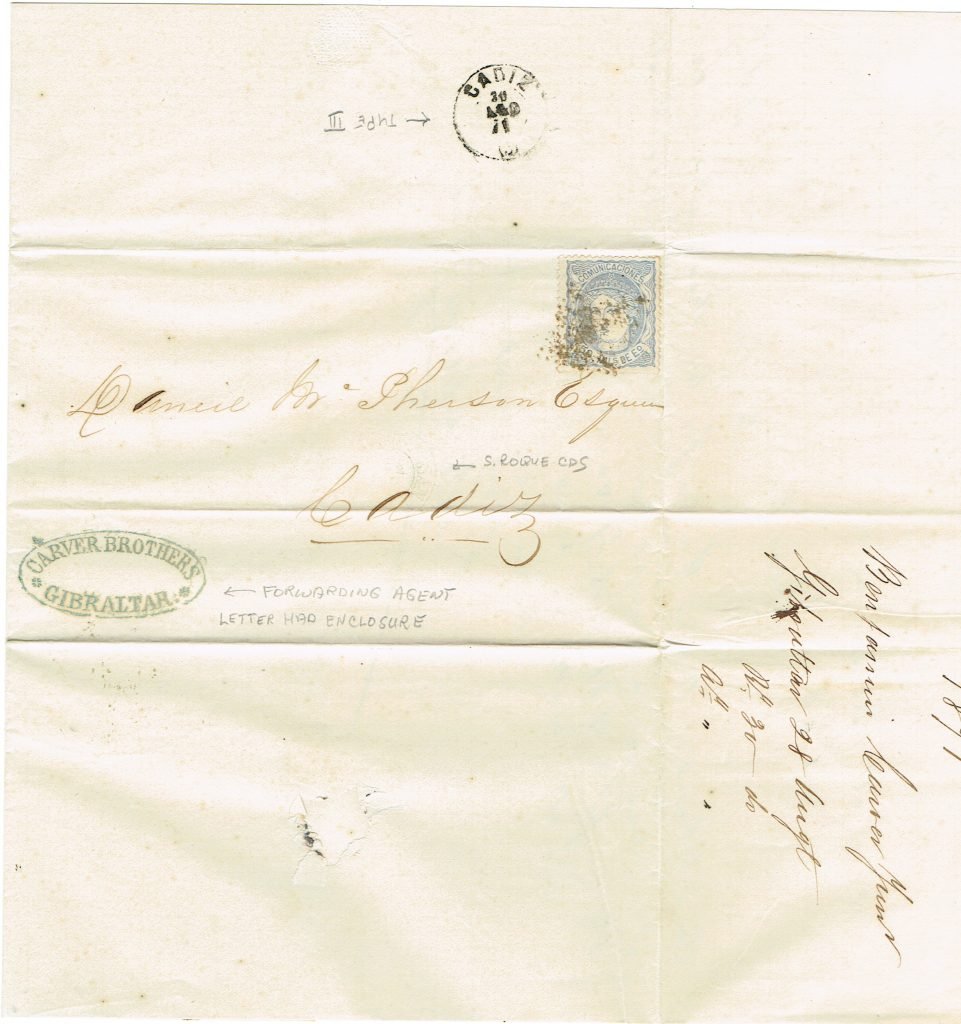 CADIZ
30
AGO
71
← TYPE III
COMUNICACIONES
50 MILS DE Eo
Daniel Mc Pherson Esquire
← S. ROQUE CDS
Cadiz
CARVER BROTHERS
GIBRALTAR
← FORWARDING AGENT
LETTER HAD ENCLOSURE
1871
Benjamin Carver Junr
Gibraltar 28 Augt
Rd. 30 do
Ad. " "